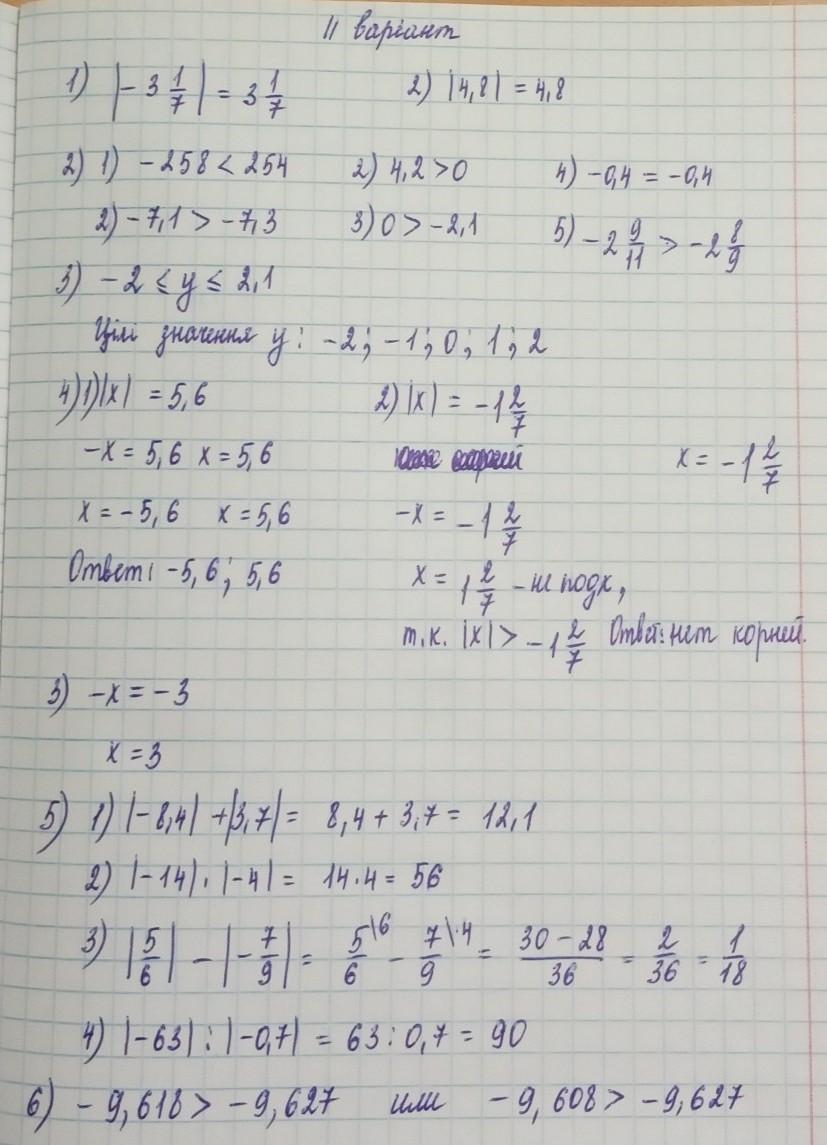 11 варіант
1) |-3 1/7| = 3 1/7 2) |4,8| = 4,8
2) 1) -258 < 254 2) 4,2 > 0 4) -0,4 = -0,4
2) -7,1 > -7,3 3) 0 > -2,1 5) -2 9/11 > -2 8/9
3) -2 ≤ y ≤ 2,1
Цілі значення y: -2; -1; 0; 1; 2
4) 1) |x| = 5,6 2) |x| = -1 2/7
-x = 5,6 x = 5,6 x = -1 2/7
x = -5,6 x = 5,6 -x = -1 2/7
Ответ: -5,6; 5,6 x = 1 2/7 - не подх,
т.к. |x| > -1 2/7 Ответ: нет корней.
3) -x = -3
x = 3
5) 1) |-8,4| + |3,7| = 8,4 + 3,7 = 12,1
2) |-14| · |-4| = 14 · 4 = 56
3) |5/6| - |-7/9| = 5/6 \6 - 7/9 \·4 = (30 - 28)/36 = 2/36 = 1/18
4) |-63| : |-0,7| = 63 : 0,7 = 90
6) -9,618 > -9,627 или -9,608 > -9,627